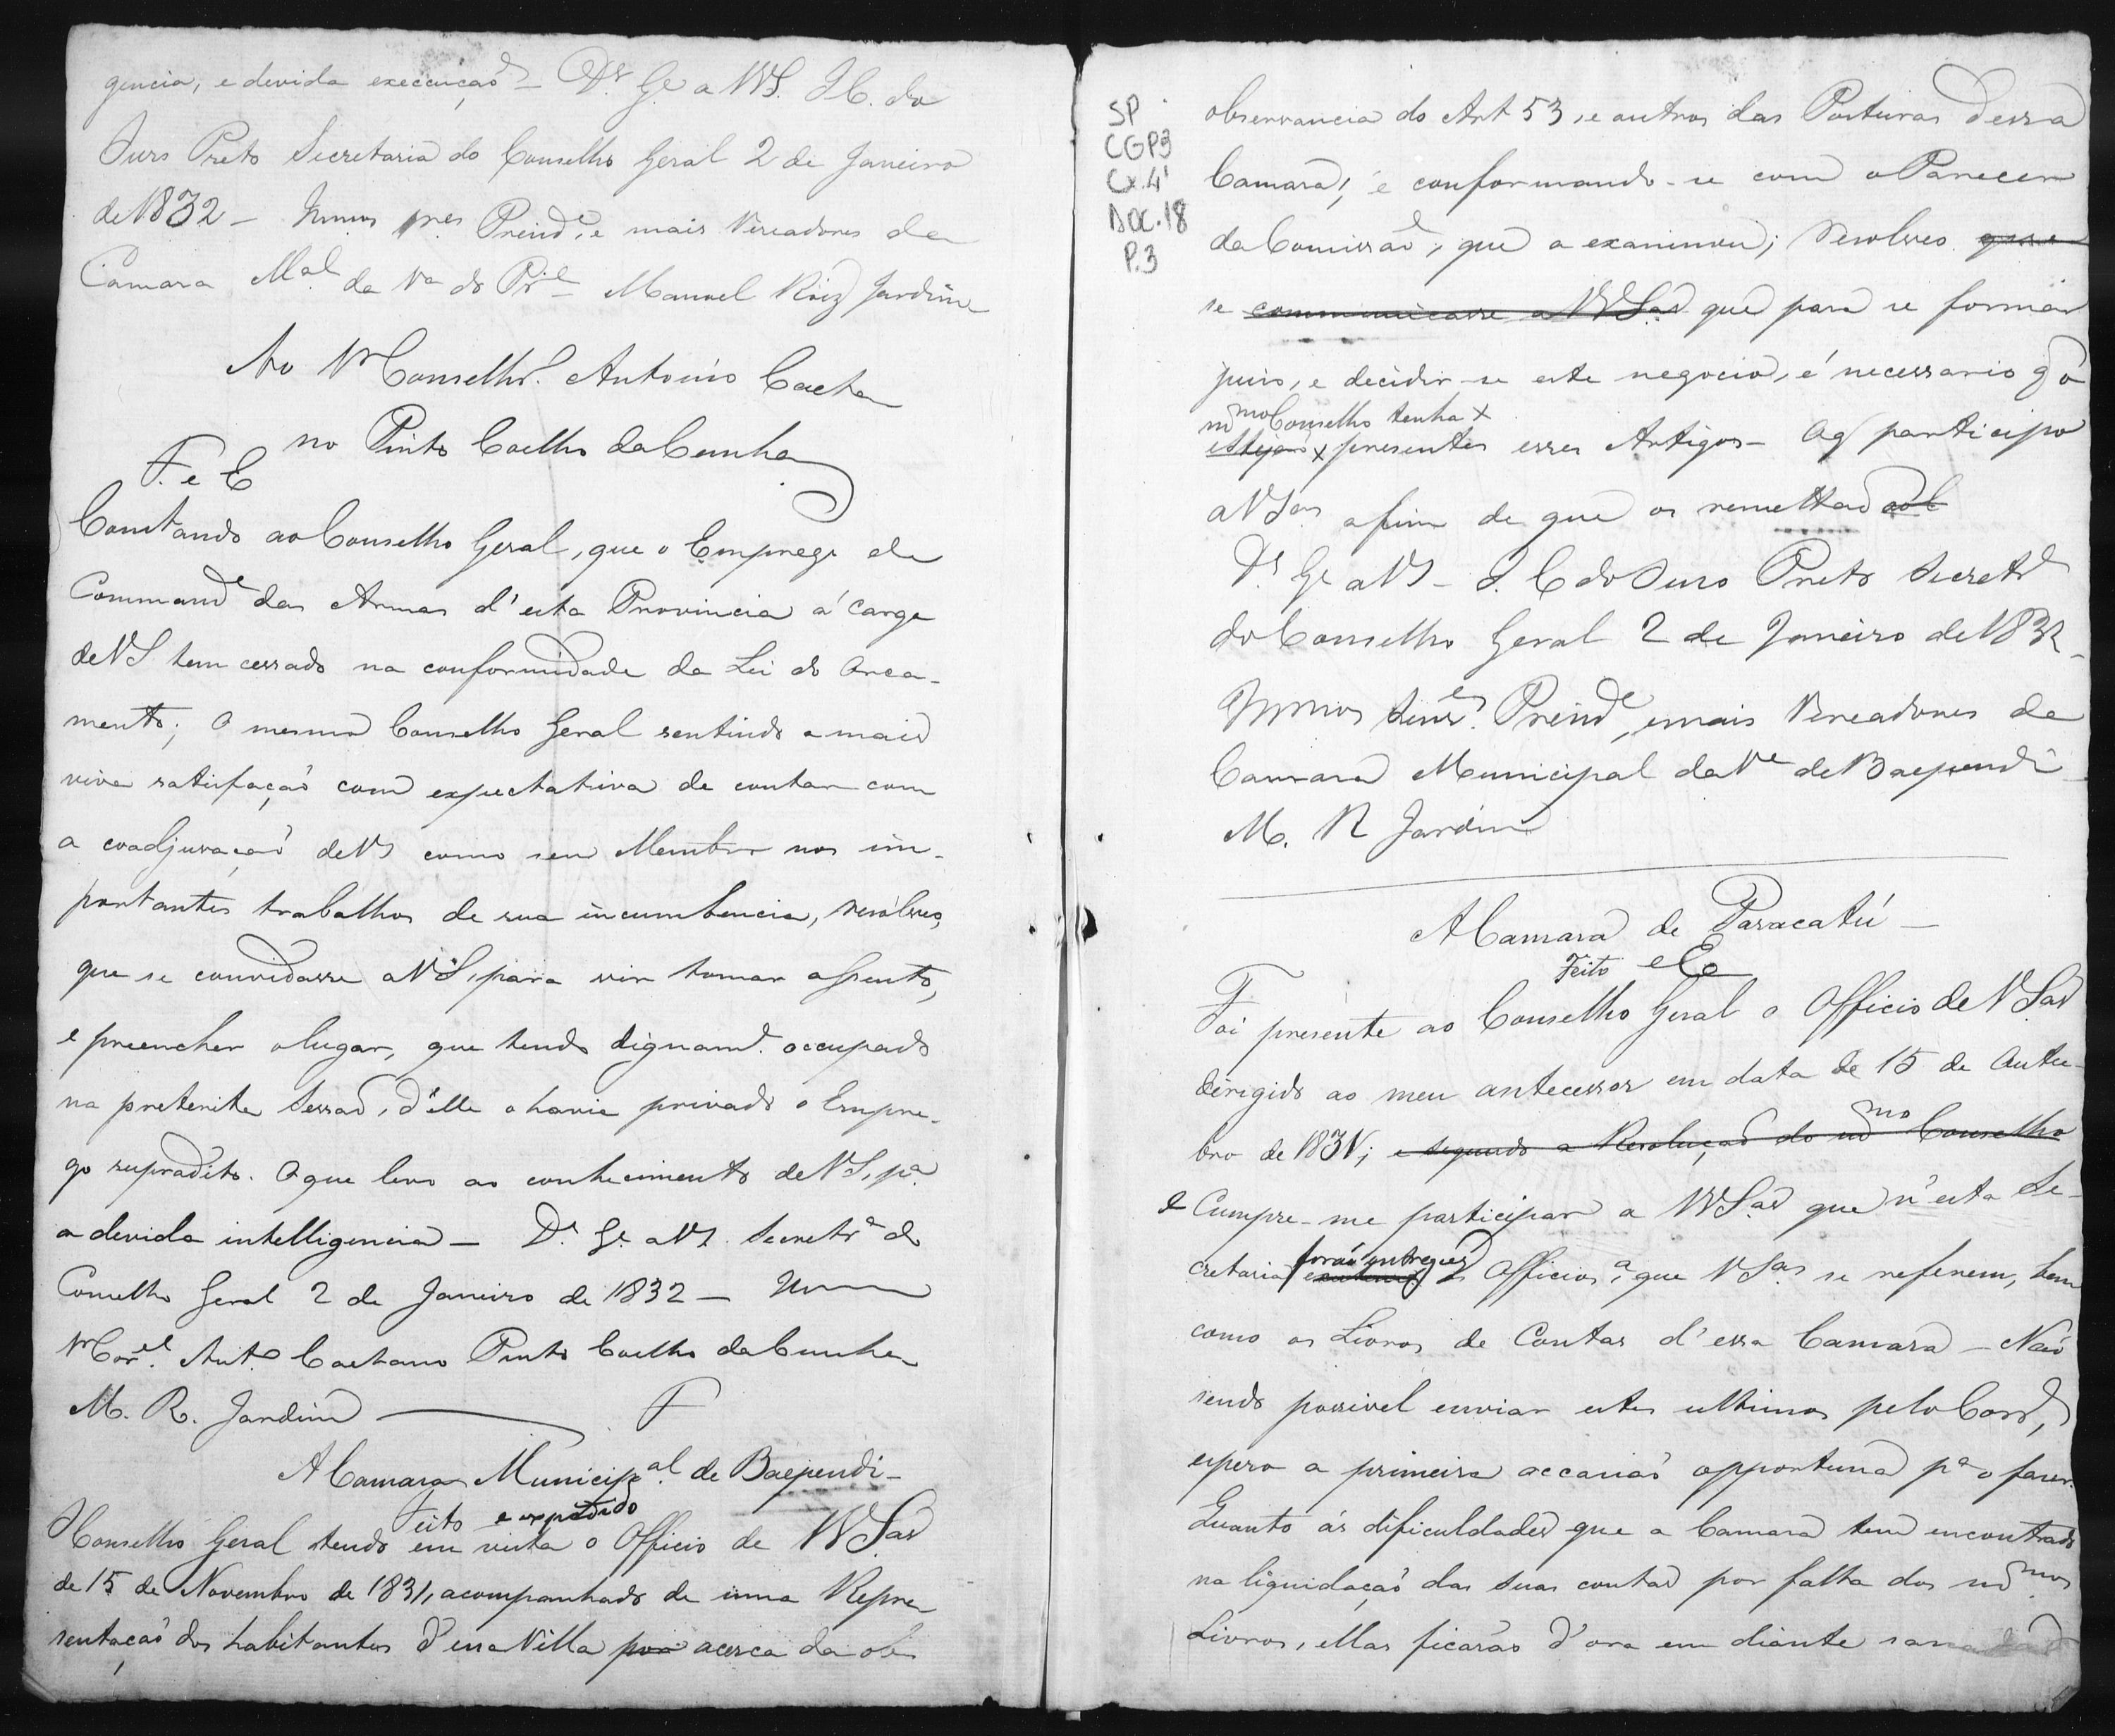 gencia, e devida execuçaõ – Ds Ge a VVS. I C. do
Ouro Preto Secretaria do Conselho Geral 2 de Janeiro
de 1832 – Presde, e mais Vereadores da
Camara Mal da Va do Pe – Manoel Roiz Jardim
Ao Conselhro. Antonio Caeta
no Pinto Coelho da Cunha
F. e E
Constando ao Conselho Geral, que o Emprego de
Commande das Armas d'esta Provincia á cargo
de VS tem cessado na conformidade da Lei do Orca-
mento; O mesmo Conselho Geral sentindo a mais
viva satisfaçaõ com expectativa de contar com
a coadjuvaçaõ de VS como seu Membro nos im-
portantes trabalhos de sua incumbencia, resolveo,
que se convidasse a VS, para vir tomar assento,
e preencher o lugar, que tendo dignamte. occupado
na preterita Sessaõ, d'elle o havia privado o Empre-
go supradito. O que levo ao conhecimento de VS, pa.
a devida intelligencia – Ds. Ge. a VS. Secretra do
Conselho Geral 2 de Janeiro de 1832 –
Corel. Anto Caetano Pinto Coelho da Cunha
M. R. Jardim F
A Camara Municipal. de Baependi –
Feito e expedido
O Conselho Geral tendo em vista o Officio de VVSas
de 15 de Novembro de 1831, acompanhado de uma Repre
sentaçaõ dos habitantes d'essa Villa por acerca da ob
SP
CGP3
Cx. 4
DOC. 18
P. 3
observancia do Art 53, e outros das Posturas dessa
Camara, e conformando-se com o Parecer
da Comissaõ, que a examinou; resolveo que
se communicasse a VVSas que para se formar
juiso, e decidir-se este negocio, é necessario q o
mmo Conselho tenha x
estejaõ x presentes esses Artigos – O q participo
a VSas afim de que os remettaõ ao C
Ds Ge a VS – I. C do Ouro Preto Secreta
do Conselho Geral 2 de Janeiro de 1832 –
Senres. Preside, e mais Vereadores da
Camara Municipal da Va de Baependi
M. R Jardim
A Camara de Paracatú –
Feito e E
Foi presente ao Conselho Geral o Officio de VSas
dirigido ao meu antecessor em data de 15 de Outu-
bro de 1831; e segundo a Resoluçaõ do mmo Conselho
e Cumpre-me participar a VVSas que n'esta Se-
cretaria foraõ entregues os Officios, a que VSas se referem, bem
como os Livros de Contas d'essa Camara – Naõ
sendo possivel enviar estes ultimos pelo Corro,
espero a primeira occasiaõ opportuna pa o fazer.
Quanto ás dificuldades que a Camara tem encontrado
na liquidaçaõ das suas contas por falta dos mmos
Livros, ellas ficaraõ d'ora em diante sanadas